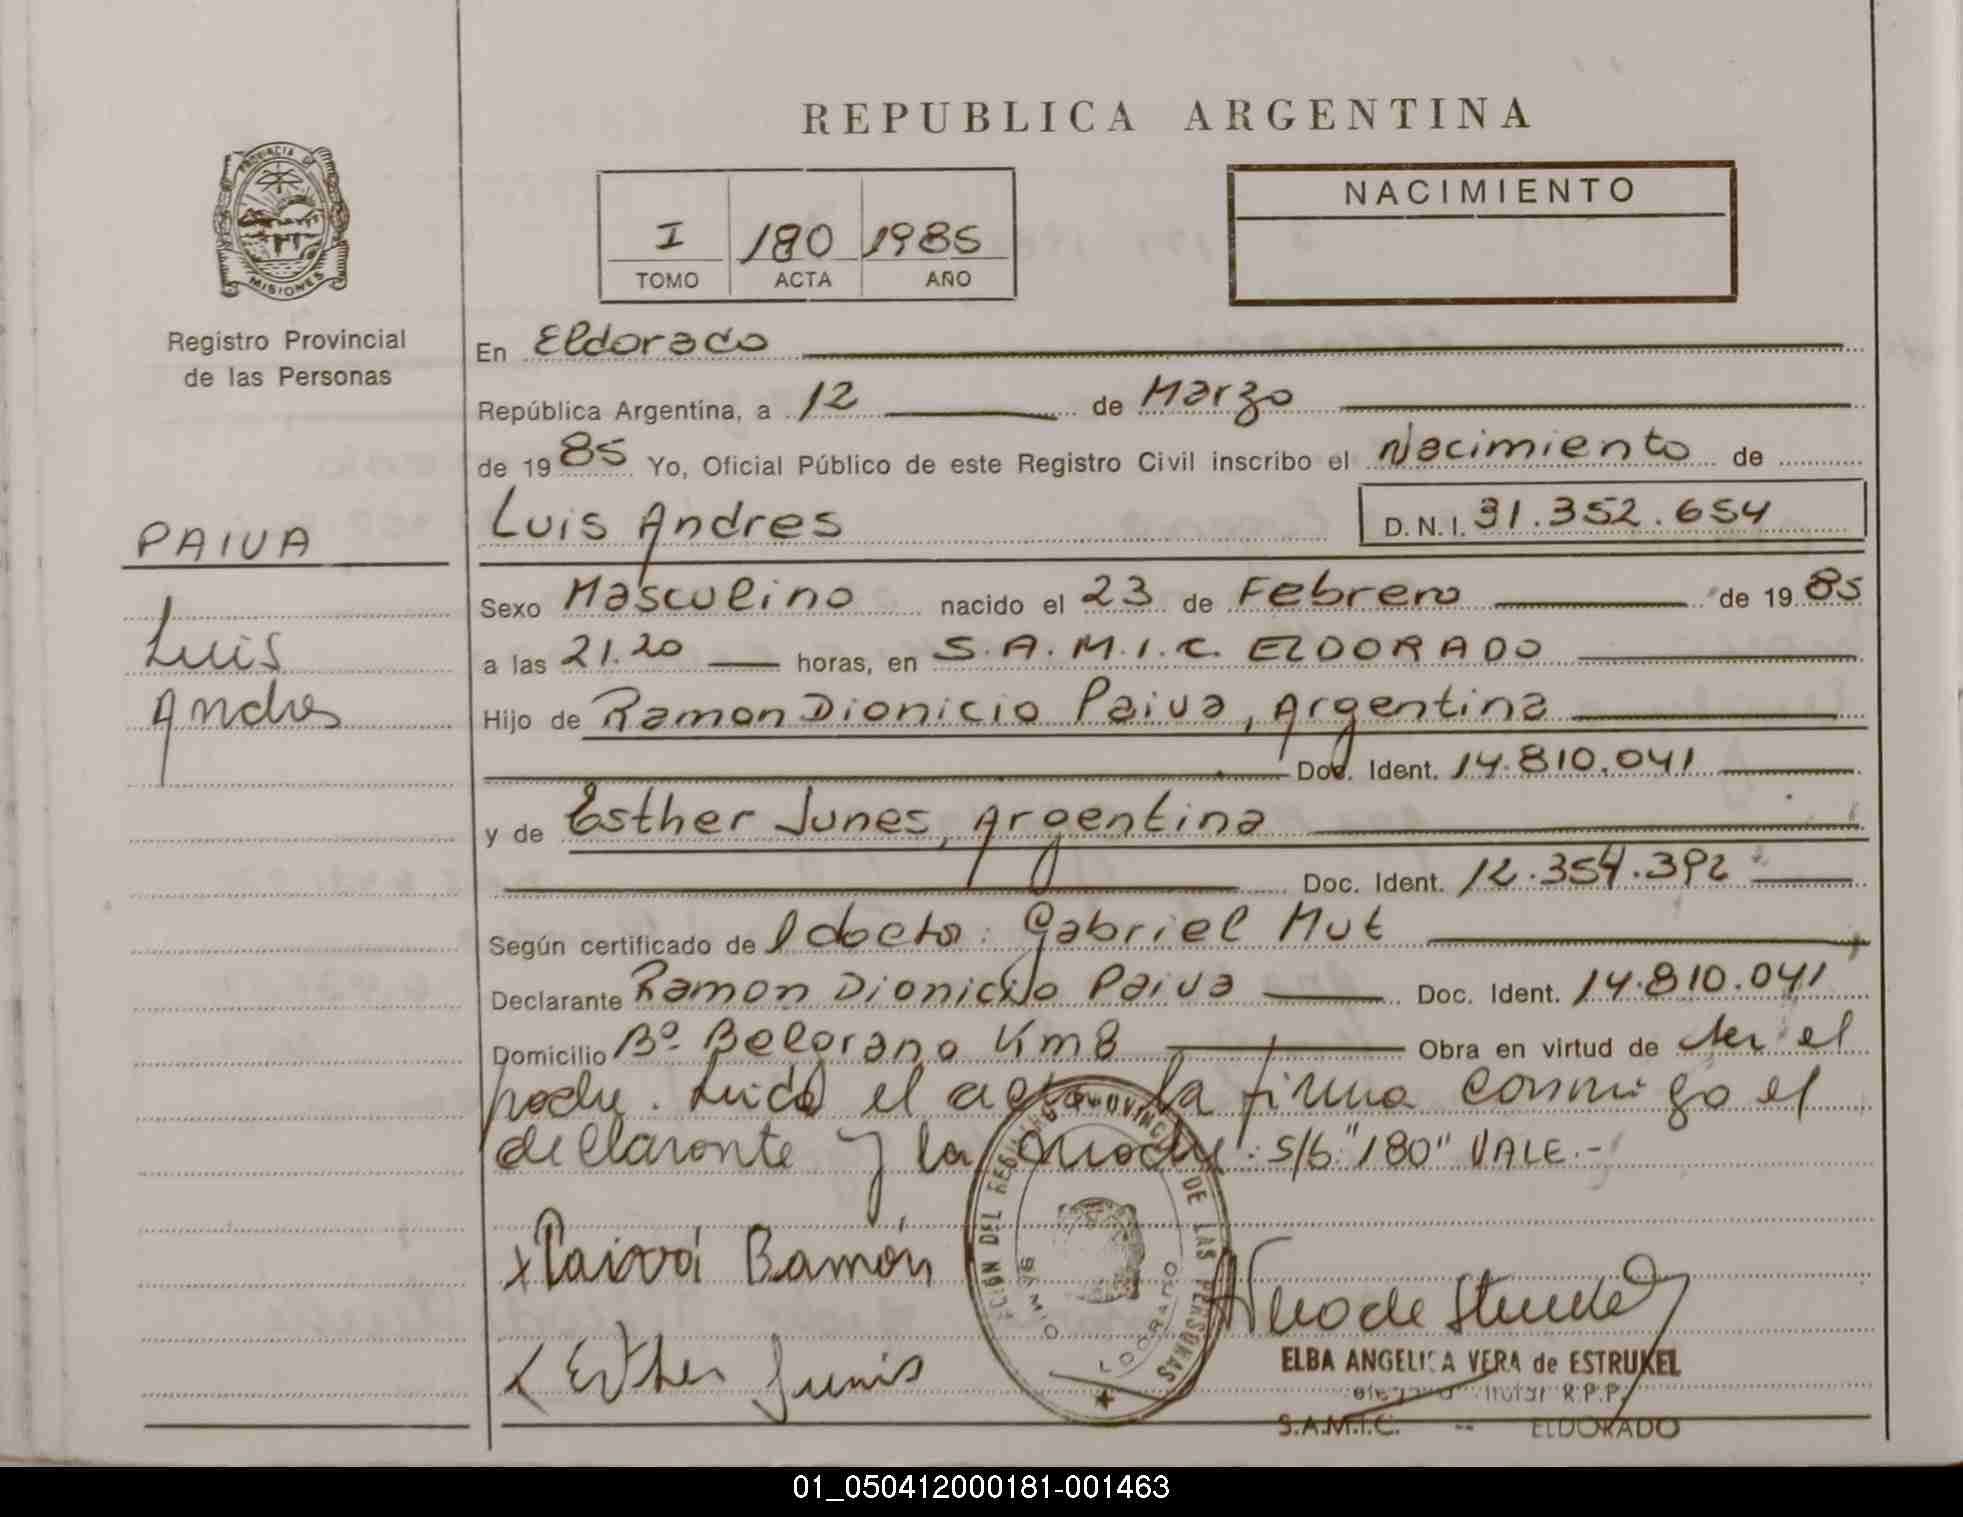 REPUBLICA ARGENTINA
PROVINCIA DE
MISIONES
Registro Provincial
de las Personas
I 180 1985
TOMO ACTA AÑO
NACIMIENTO
En Eldorado
República Argentina, a 12 de Marzo
de 1985 Yo, Oficial Público de este Registro Civil inscribo el Nacimiento de
Luis Andres D.N.I. 31.352.654
PAIVA
Luis
Andres
Sexo Masculino nacido el 23 de Febrero de 1985
a las 21.20 horas, en S.A.M.I.C. ELDORADO
Hijo de Ramon Dionicio Paiva, Argentina
Doc. Ident. 14.810.041
y de Esther Junes, Argentina
Doc. Ident. 12.354.392
Según certificado de l doctor: Gabriel Mut
Declarante Ramon Dionicio Paiva Doc. Ident. 14.810.041
Domicilio Bº Belgrano Km 8 Obra en virtud de ser el
padre. Leida el acta la firma conmigo el
declarante y la madre: S/b "180" VALE.-
x Paiva Ramón
x Esther Junis
DEL REGISTRO PROVINCIAL DE LAS PERSONAS
ELBA ANGELICA VERA de ESTRUKEL
R.P.P.
S.A.M.I.C. -- ELDORADO
01_050412000181-001463